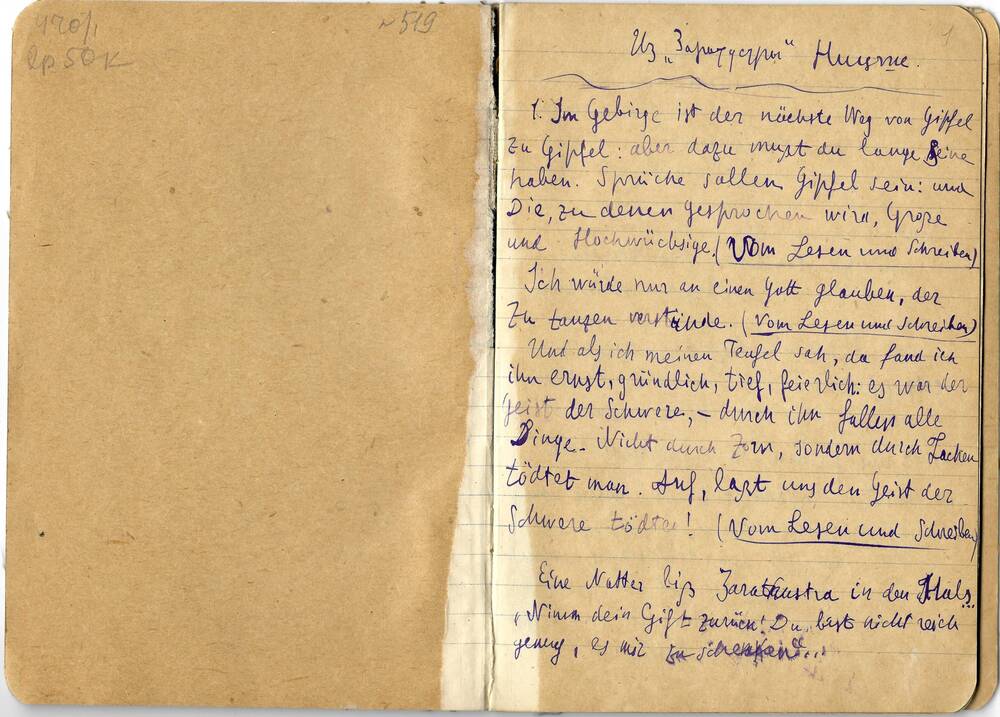 420/1
2р 50к
№519
1
Из „Заратустры" Ницше.
1. Im Gebirge ist der nächste Weg von Gipfel
zu Gipfel: aber dazu mußt du lange Beine
haben. Sprüche sollen Gipfel sein: und
Die, zu denen gesprochen wird, Große
und Hochwüchsige. (Vom Lesen und Schreiben)
Ich würde nur an einen Gott glauben, der
zu tanzen verstünde. (Vom Lesen und Schreiben)
Und als ich meinen Teufel sah, da fand ich
ihn ernst, gründlich, tief, feierlich: es war der
Geist der Schwere, – durch ihn fallen alle
Dinge. Nicht durch Zorn, sondern durch Lachen
tödtet man. Auf, laßt uns den Geist der
Schwere tödten! (Vom Lesen und Schreiben)
Eine Natter biß Zarathustra in den Hals...
„Nimm dein Gift zurück! Du bist nicht reich
genug, es mir zu schenken"...